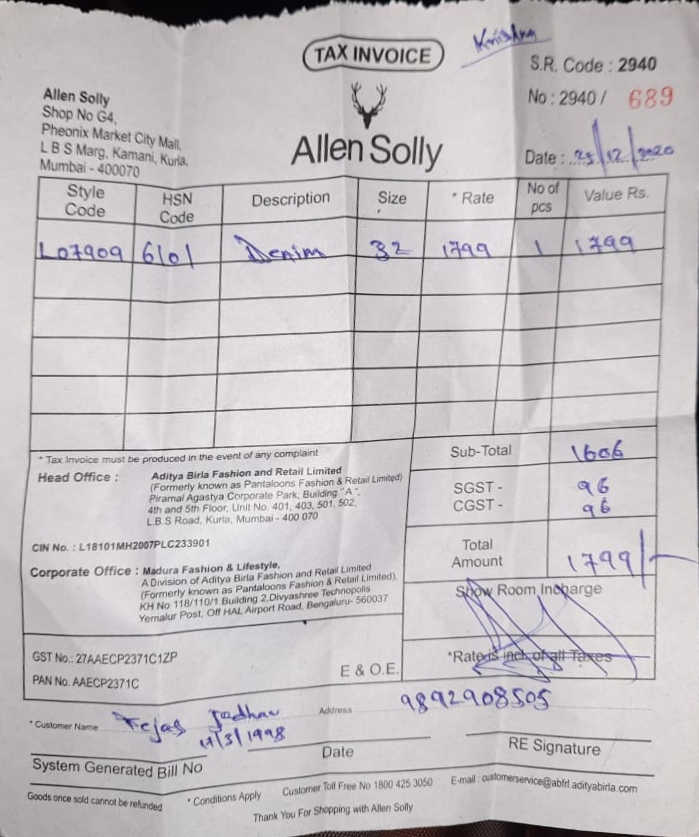 TAX INVOICE
Krishna
S.R. Code : 2940
No : 2940 / 689
Date : 25/12/2020
Allen Solly
Shop No G4,
Pheonix Market City Mall,
L B S Marg, Kamani, Kurla,
Mumbai - 400070
Allen Solly
Style Code HSN Code Description Size * Rate No of pcs Value Rs.
L07909 6101 Denim 32 1799 1 1799
* Tax Invoice must be produced in the event of any complaint
Head Office : Aditya Birla Fashion and Retail Limited
(Formerly known as Pantaloons Fashion & Retail Limited)
Piramal Agastya Corporate Park, Building "A",
4th and 5th Floor, Unit No. 401, 403, 501, 502,
L.B.S Road, Kurla, Mumbai - 400 070
CIN No. : L18101MH2007PLC233901
Corporate Office : Madura Fashion & Lifestyle,
A Division of Aditya Birla Fashion and Retail Limited
(Formerly known as Pantaloons Fashion & Retail Limited),
KH No 118/110/1 Building 2,Divyashree Technopolis
Yemalur Post, Off HAL Airport Road, Bengaluru- 560037
Sub-Total 1606
SGST - 96
CGST - 96
Total Amount 1799/-
Show Room Incharge
*Rate is incl. of all Taxes
GST No.: 27AAECP2371C1ZP
PAN No. AAECP2371C
E & O.E.
* Customer Name Tejas Jadhav Address 9892908505
11/3/1998
Date
RE Signature
System Generated Bill No
Goods once sold cannot be refunded * Conditions Apply Customer Toll Free No 1800 425 3050 E-mail : customerservice@abfrl.adityabirla.com
Thank You For Shopping with Allen Solly